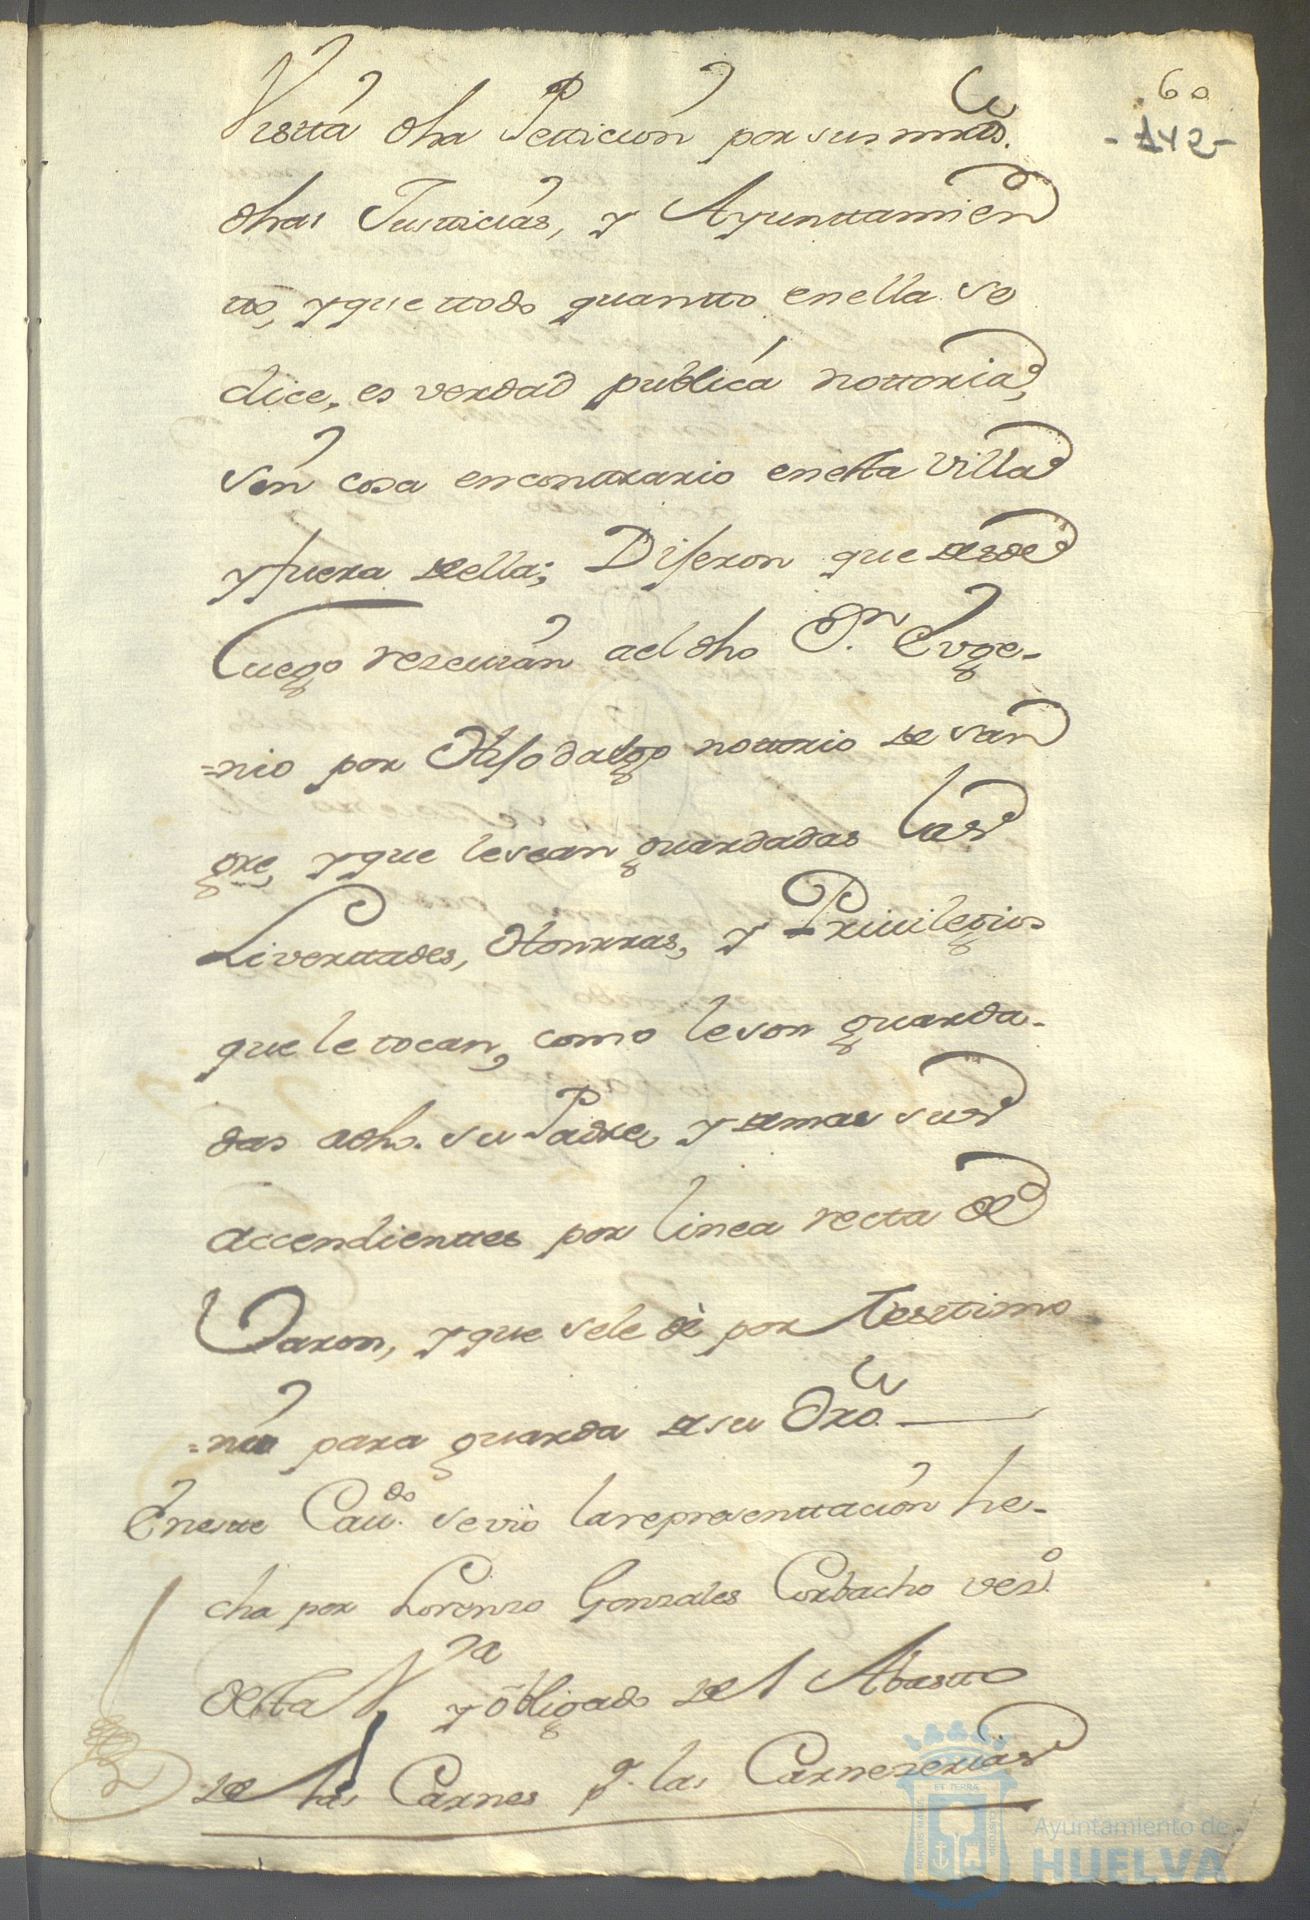 60
-142-
Vistta dha Petticion por sus mrds.
dhas Justticias, y Ayunttamien
tto, y que ttodo quantto en ella se
dice, es verdad publica nottoria,
sin cosa en conttrario en esta Villa
y fuera de ella; Dijeron que desde
Luego reseuian a el dho Dn. Euge-
=nio por Hijodalgo nottorio de san
gre, y que le sean guardadas las
Liverttades, Honrras, y Priuilegios
que le tocan, como le son guarda-
das a dho. su Padre, y demas sus
accendienttes por linea recta de
Varon, y que se le dè por Testtimo
=nio para guarda de su Dro.
En estte Caudo. se vio la representtacion he-
cha por Lorenzo Gonzales Corbacho vezo.
desta Va y obligado del Abastto
de las Carnes pa. las Carnezerias
PORTUS MARIS
ET TERRÆ
CUSTODIA
Ayuntamiento de
HUELVA